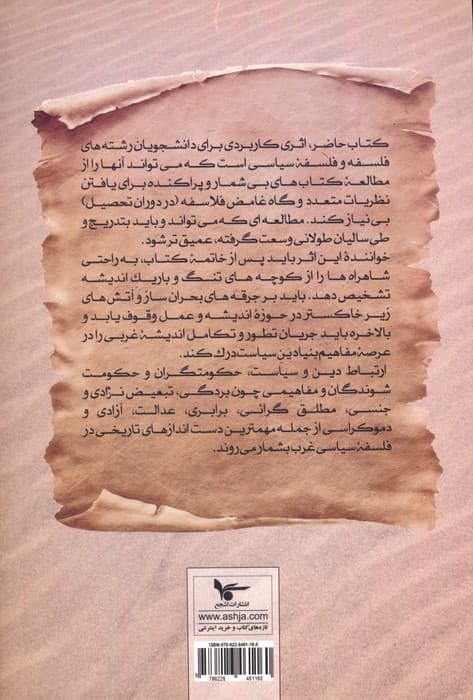 کتاب حاضر، اثری کاربردی برای دانشجویان رشته های
فلسفه و فلسفۀ سیاسی است که می تواند آنها را از
مطالعۀ کتاب های بی شمار و پراکنده برای یافتن
نظریات متعدد و گاه غامض فلاسفه (در دوران تحصیل)
بی نیاز کند. مطالعه ای که می تواند و باید بتدریج و
طی سالیان طولانی وسعت گرفته، عمیق تر شود.
خوانندۀ این اثر باید پس از خاتمۀ کتاب، به راحتی
شاهراه ها را از کوچه های تنگ و باریک اندیشه
تشخیص دهد. باید بر جرقه های بحران ساز و آتش های
زیر خاکستر در حوزۀ اندیشه و عمل وقوف یابد و
بالاخره باید جریان تطور و تکامل اندیشۀ غربی را در
عرصۀ مفاهیم بنیادین سیاست درک کند.
ارتباط دین و سیاست، حکومتگران و حکومت
شوندگان و مفاهیمی چون بردگی، تبعیض نژادی و
جنسی، مطلق گرائی، برابری، عدالت، آزادی و
دموکراسی از جمله مهمترین دست اندازهای تاریخی در
فلسفۀ سیاسی غرب بشمار می روند.
انتشارات اشجع
www.ashja.com
تازه های کتاب و خرید اینترنتی